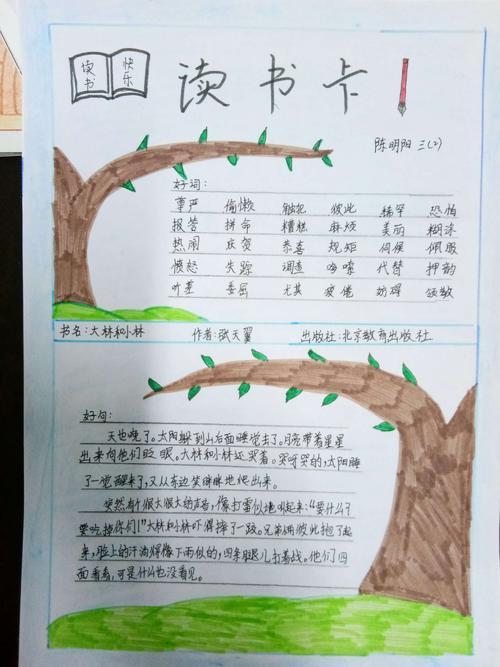 读书 快乐
读书卡
陈明阳 三(2)
好词:
尊严 偷懒 触犯 彼此 稀罕 恐怕
报答 拼命 糟糕 麻烦 美丽 糊涂
热闹 庆贺 恭喜 规矩 伺候 佩服
愤怒 失踪 调查 咕噜 代替 押韵
叶差 委屈 尤其 疲倦 妨碍 领教
书名:大林和小林 作者:张天翼 出版社:北京教育出版社
好句:
天也晚了。太阳躲到山后面睡觉去了。月亮带着星星
出来向他们眨眼。大林和小林还哭着。哭呀哭的,太阳睡
了一觉醒来了,又从东边笑眯眯地爬出来。
突然有个很大很大的声音,像打雷似地叫起来:“要什么?
要吃掉你们!”大林和小林吓得摔了一跤。兄弟俩彼此抱了起
来,脸上的汗油焊像下雨似的,四条腿儿打着战。他们四
面看看,可是什么也没看见。